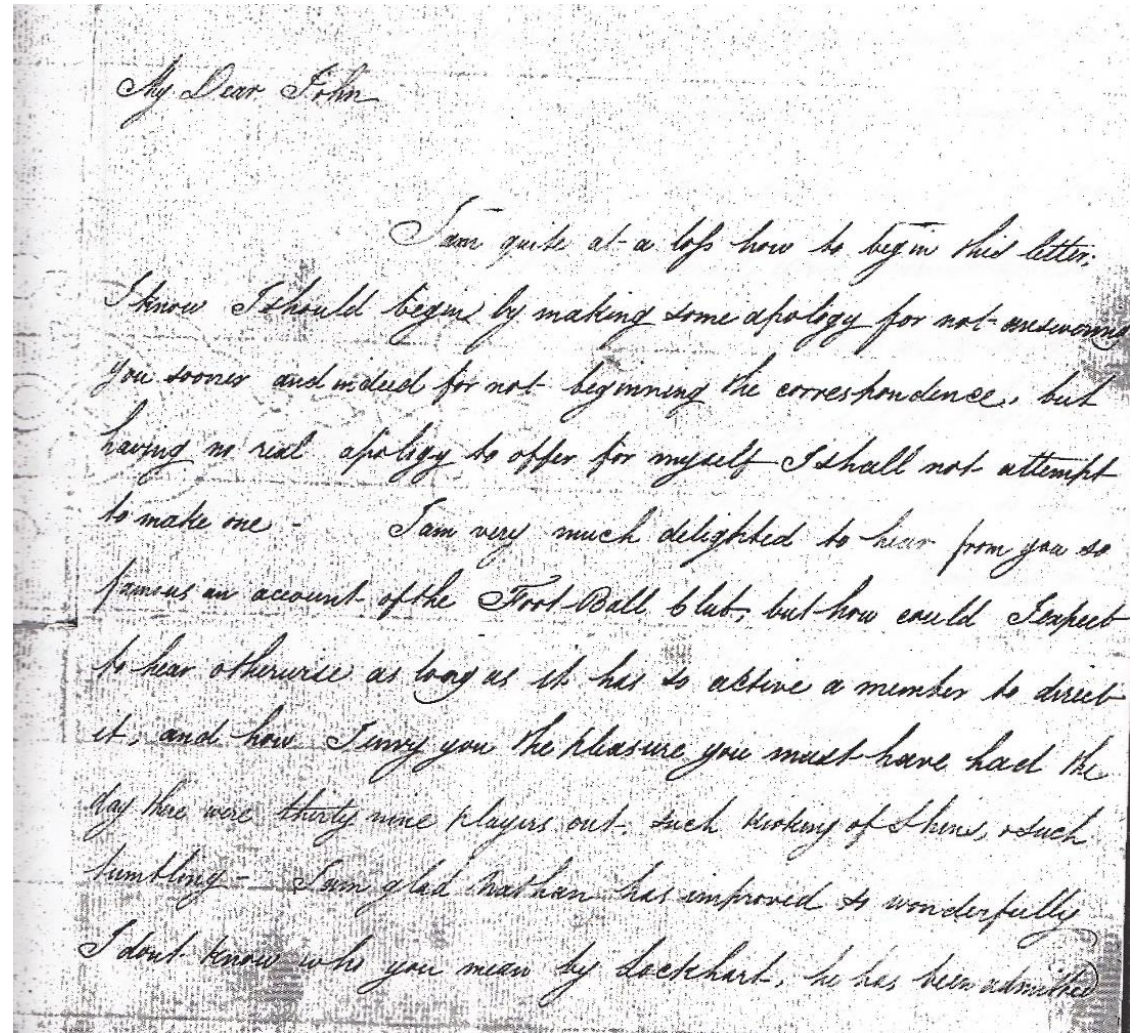 My Dear John
I am quite at a loss how to begin this letter,
I know I should begin by making some apology for not answering
you sooner and indeed for not beginning the correspondence, but
having no real apology to offer for myself I shall not attempt
to make one - I am very much delighted to hear from you so
famous an account of the Foot-Ball Club, but how could I expect
to hear otherwise as long as it has so active a member to direct
it, and how I envy you the pleasure you must have had the
day there were thirty nine players out - such kicking of shins, & such
tumbling - I am glad Nathan has improved so wonderfully
I dont know who you mean by Lockhart, he has been admitted